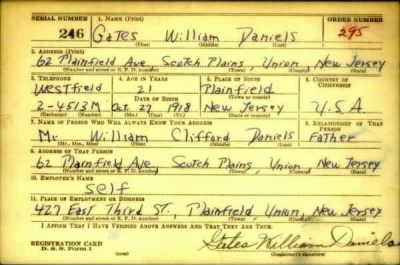 SERIAL NUMBER 1. NAME (Print) ORDER NUMBER
246 Gates William Daniels 295
(First) (Middle) (Last)
2. ADDRESS (Print)
62 Plainfield Ave Scotch Plains, Union, New Jersey
(Number and street or R. F. D. number) (Town) (County) (State)
3. TELEPHONE 4. AGE IN YEARS 5. PLACE OF BIRTH 6. COUNTRY OF CITIZENSHIP
Westfield 21 Plainfield
DATE OF BIRTH
2-4513M Oct. 27 1918 New Jersey U.S.A.
(Exchange) (Number) (Mo.) (Day) (Yr.) (State or country)
7. NAME OF PERSON WHO WILL ALWAYS KNOW YOUR ADDRESS 8. RELATIONSHIP OF THAT PERSON
Mr. William Clifford Daniels Father
(Mr., Mrs., Miss) (First) (Middle) (Last)
9. ADDRESS OF THAT PERSON
62 Plainfield Ave Scotch Plains, Union, New Jersey
(Number and street or R. F. D. number) (Town) (County) (State)
10. EMPLOYER'S NAME
Self
11. PLACE OF EMPLOYMENT OR BUSINESS
427 East Third St., Plainfield, Union, New Jersey
(Number and street or R. F. D. number) (Town) (County) (State)
I AFFIRM THAT I HAVE VERIFIED ABOVE ANSWERS AND THAT THEY ARE TRUE.
REGISTRATION CARD
D. S. S. Form 1 Gates William Daniels
(Registrant's signature)